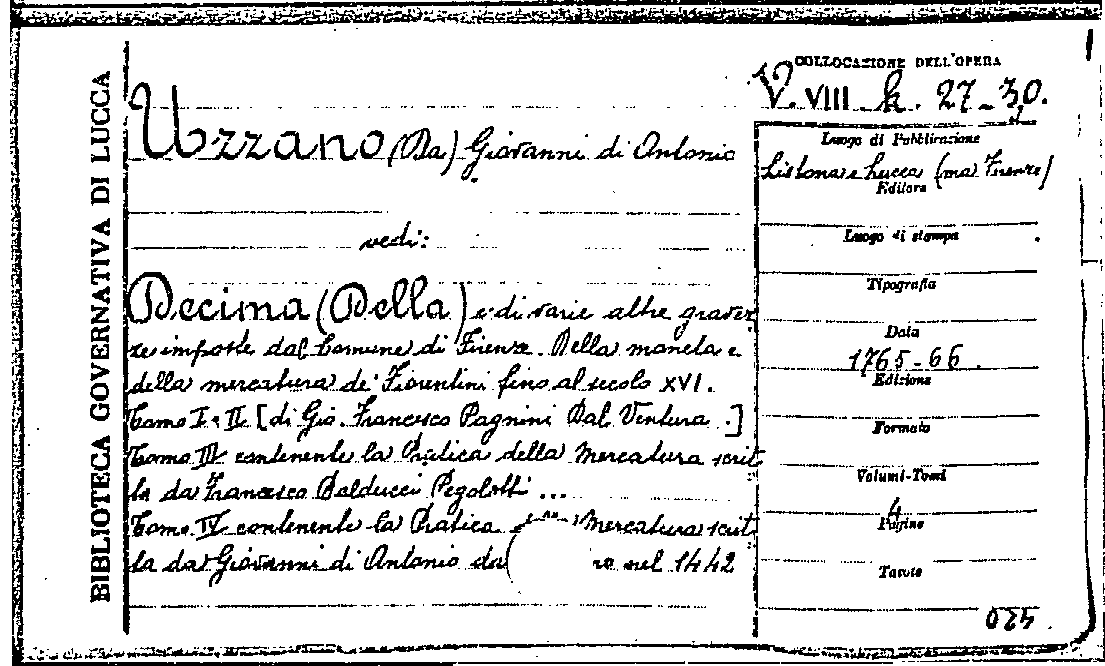 BIBLIOTECA GOVERNATIVA DI LUCCA
COLLOCAZIONE DELL'OPERA
V. VIII k. 27-30.
Uzzano (Da) Giovanni di Antonio
vedi:
Decima (Della) e di varie altre gravez
ze imposte dal Comune di Firenze. Della moneta e
della mercatura de' Fiorentini fino al secolo XVI.
Tomo I e II [di Gio. Francesco Pagnini Dal Ventura.]
Tomo III contenente la Pratica della Mercatura scrit
ta da Francesco Balducci Pegolotti ...
Tomo IV contenente la Pratica Mercatura scrit
ta da Giovanni di Antonio da no nel 1442
Luogo di Pubblicazione
Lisbona e Lucca (ma Firenze)
Editore
Luogo di stampa
Tipografia
Data
1765-66
Edizione
Formato
Volumi-Tomi
4
Pagine
Tavole